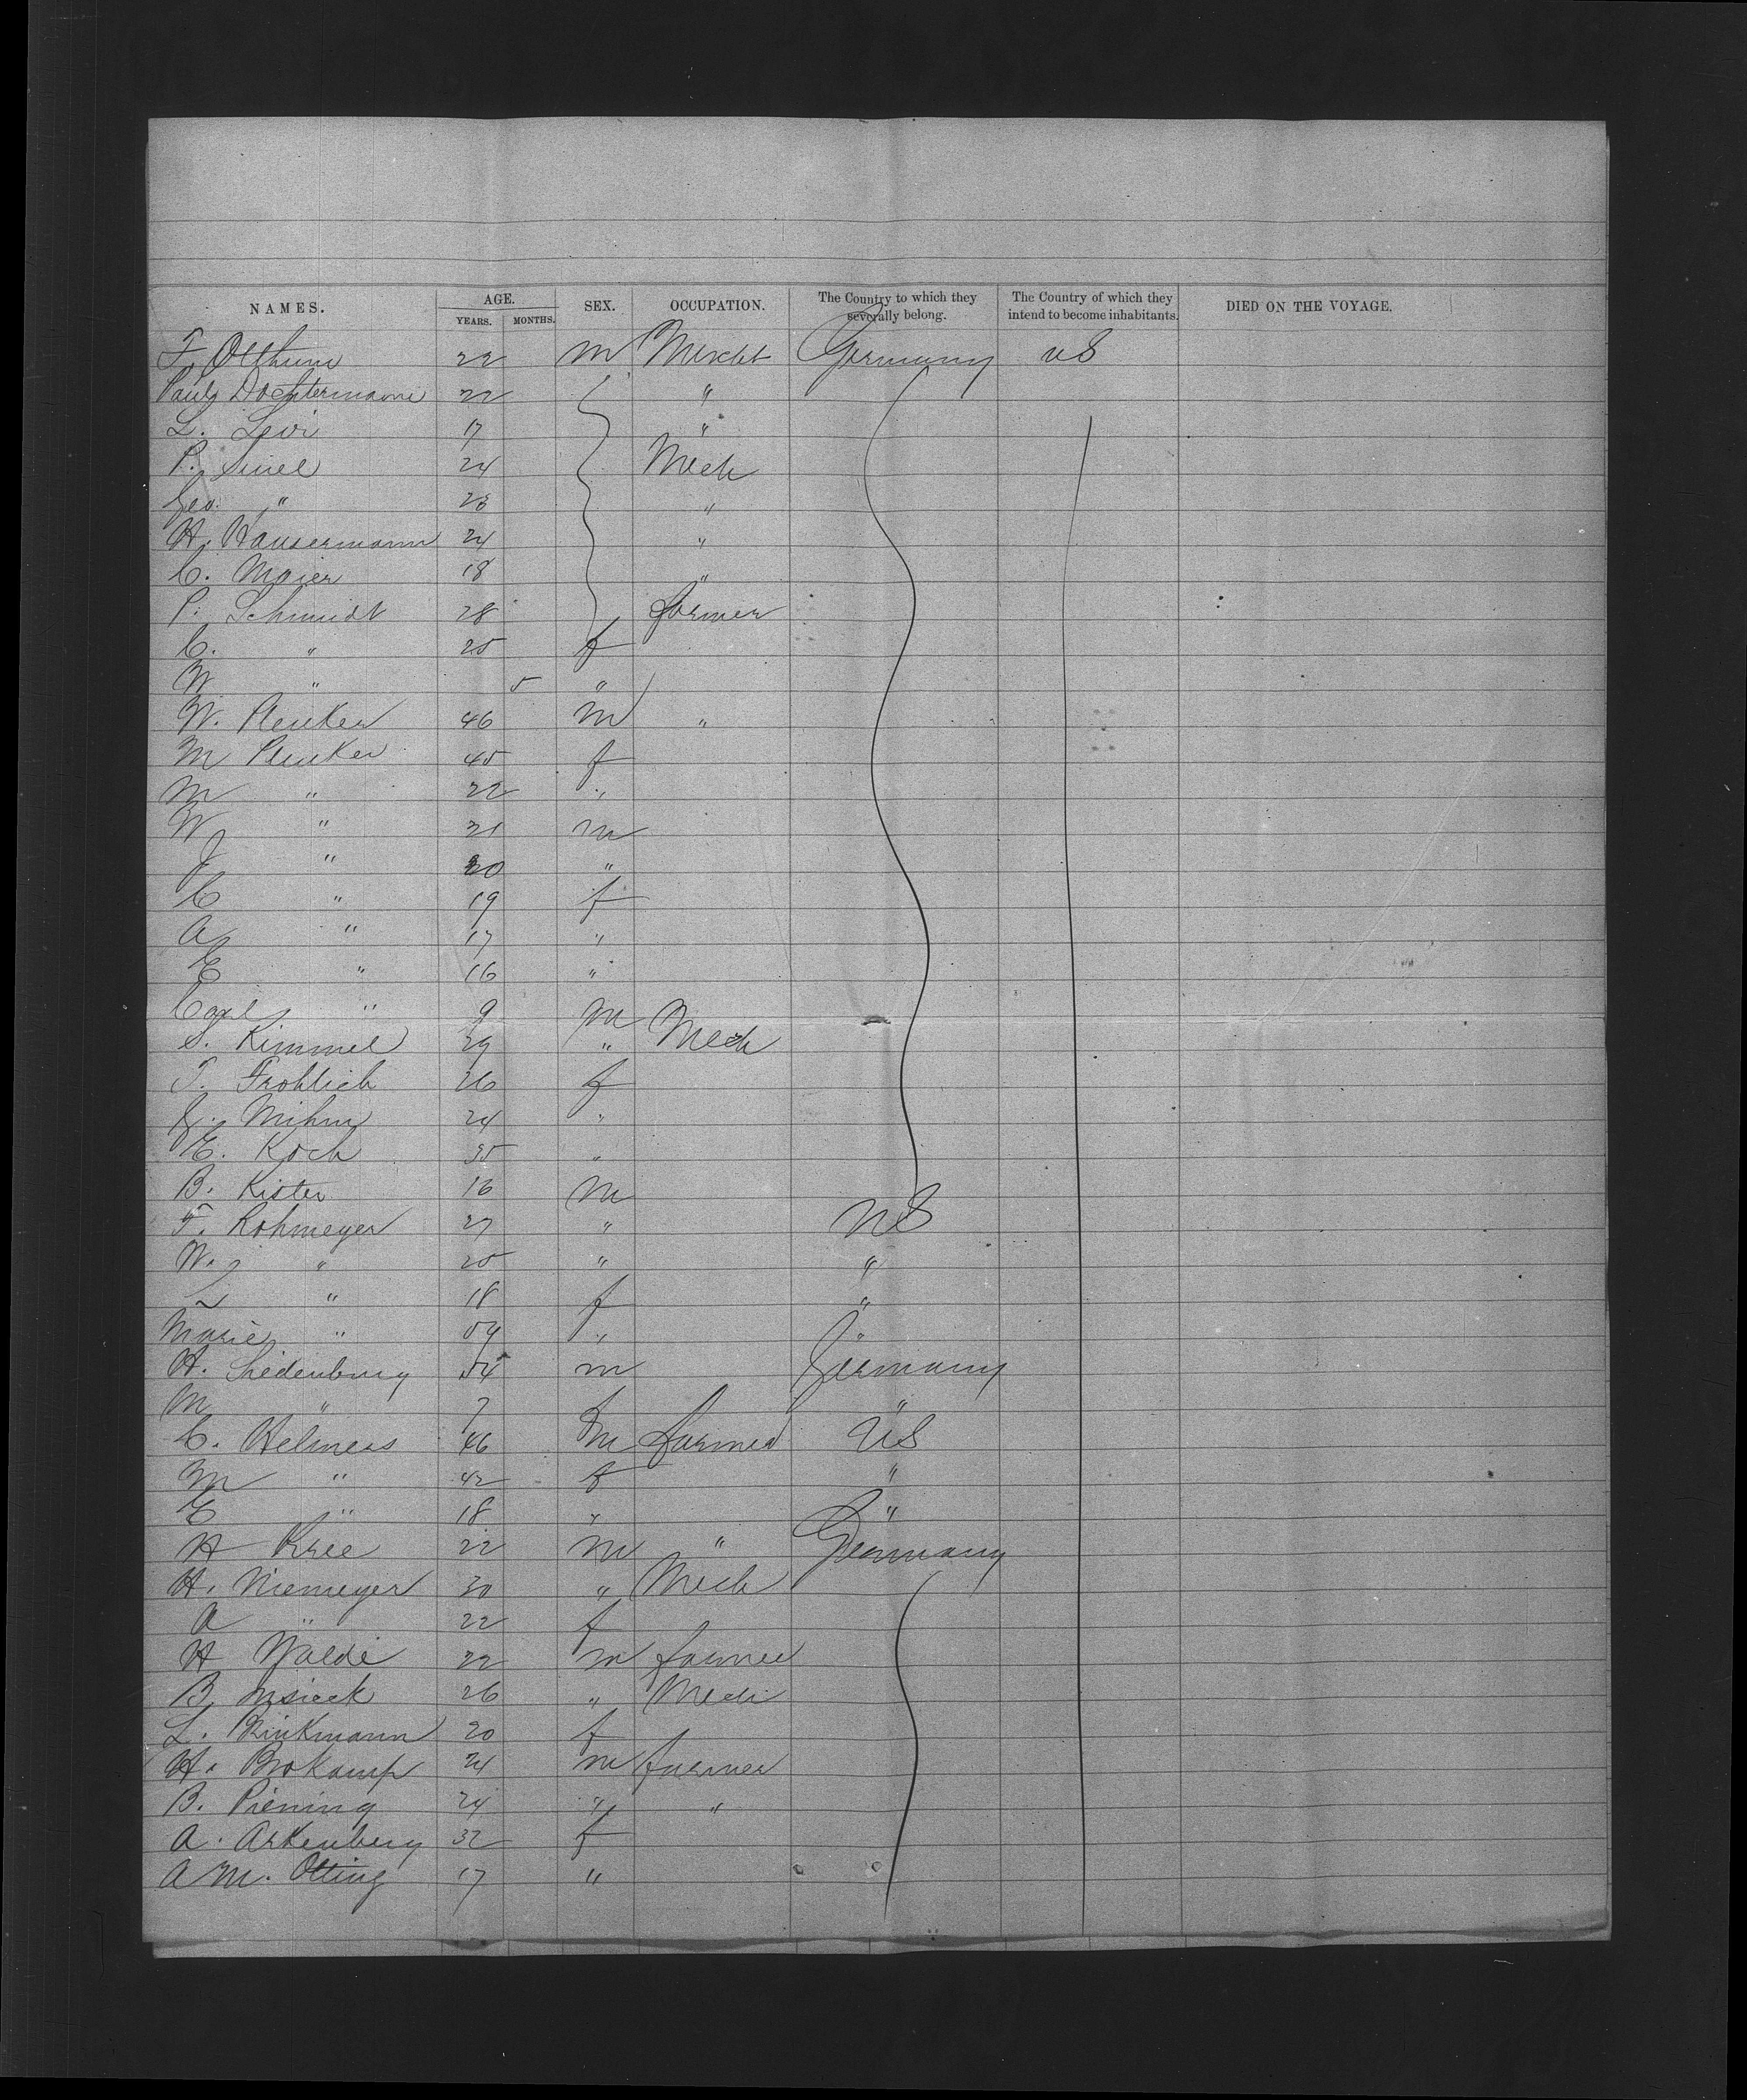 NAMES. AGE. SEX. OCCUPATION. The Country to which they severally belong. The Country of which they intend to become inhabitants. DIED ON THE VOYAGE.
YEARS. MONTHS.
F. Olthum 22 m Mercht Germany US
Paulz Dochtermann 22 "
L. Levi 17 "
P. 24 Mech
Geo. " 23 "
H. Hausermann 24 "
C. Maier 18 "
P. Schmidt 28 farmer
C. " 25 f
W " 5 "
W. Pleuker 46 m "
M Pleuker 45 f
M " 22 "
W " 21 m
J " 20 "
C " 19 f
A " 17 "
E " 16 "
Carl " 9 m
S. Kimmel 29 " Mech
T. Frohlich 26 f
Mihm 24 "
E. Koch 35 "
B. Kister 16 m
F. Rohmeyer 27 " US
W. " 25 " "
L " 18 f "
Marie " 54 " "
H. Siedenburg 54 m Germany
M " 7 "
C. Helmers 46 m farmer US
M " 42 f "
E " 18 " "
H Kree 22 m " Germany
H. Niemeyer 30 " Mech
A " 22 f
H 22 m farmer
B. 26 " Mech
L. Brinkmann 20 f
H. Brokamp 24 m farmer
B. Piening 24 " "
A. Arkenberg 32 f
A M. Otting 17 "